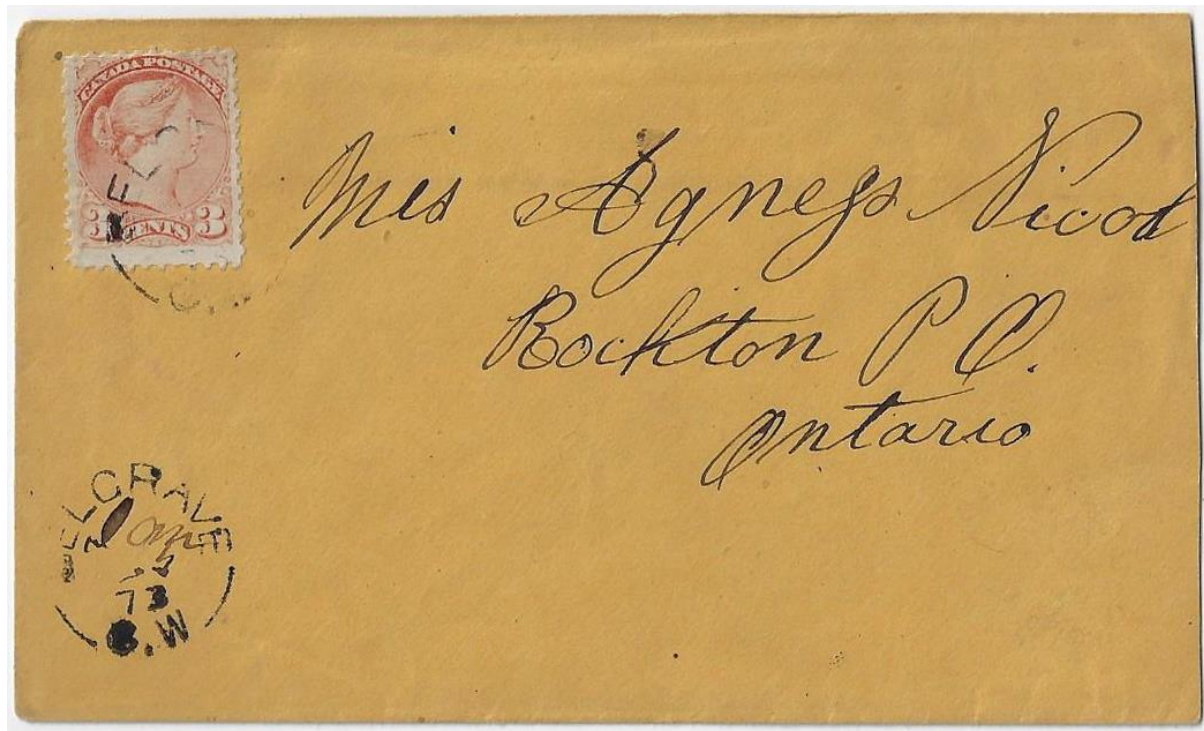 CANADA POSTAGE
3 CENTS 3
ELG
C.
Mis Agness Nicol
Rockton P O.
Ontario
ELGRAVE
73
C.W